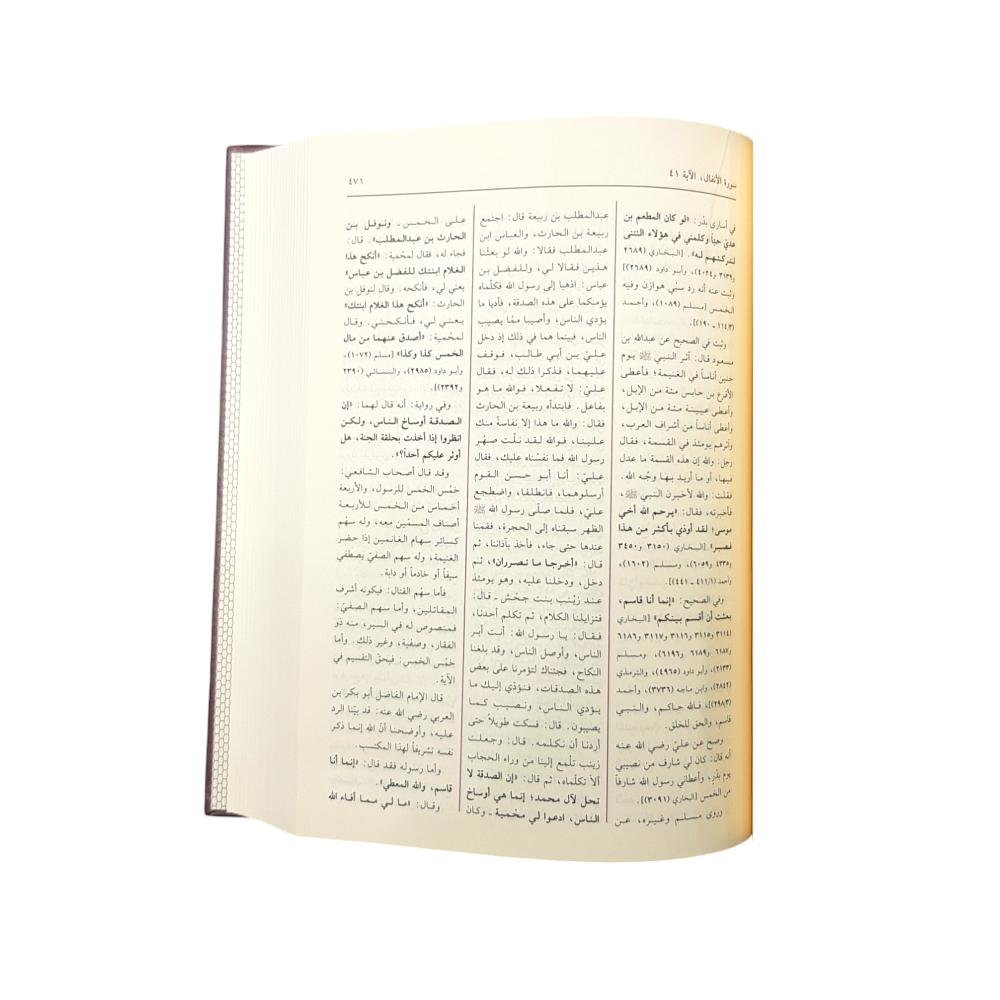 سورة الأنفال، الآية ٤١
٤٧١
في أسارى بدْر: «لو كان المطعم بن
عديّ حيّاً وكلمني في هؤلاء النتنى
لتركتهم له». [البخاري (٢٦٨٩
و٣١٣٩ و٤٠٢٤)، وأبو داود (٢٦٨٩)]
وثبت عنه أنه رد سبْي هوازن وفيه
الخمس [مسلم (١٠٨٩)، وأحمد
(١١٤/٣ - ١٩٠)].
وثبت في الصحيح عن عبدالله بن
مسعود قال: آثر النبي ﷺ يوم
حنين أناساً في الغنيمة؛ فأعطى
الأقرع بن حابس مئة من الإبل،
وأعطى عيينة مئة من الإبل،
وأعطى أناساً من أشراف العرب،
وآثرهم يومئذ في القسمة، فقال
رجل: والله إن هذه القسمة ما عدل
فيها، أو ما أريد بها وجْه الله.
فقلت: والله لأخبرن النبي ﷺ،
فأخبرته، فقال: «يرحم الله أخي
موسى؛ لقد أوذي بأكثر من هذا
فصبر» [البخاري (٣١٥٠ و٣٤٥٠
و٤٣٣٥ و٦٠٥٩)، ومسلم (١٦٠٢)،
وأحمد (٤١١/١ - ٤٤١)].
وفي الصحيح: «إنما أنا قاسم،
بعثت أن أقسم بينكم» [البخاري
(٣١١٤ و٣١١٥ و٣١١٦ و٣١١٧ و٦١٨٦
و٦١٨٧ و٦١٨٩ و٦١٩٦)، ومسلم
(٢١٣٣)، وأبو داود (٤٩٦٥)، والترمذي
(٢٨٤٢)، وابن ماجه (٣٧٣٦)، وأحمد
(٢٩٨/٣)]، فالله حاكم، والنبي
قاسم، والحق للخلق.
وصح عن عليّ رضي الله عنه
أنه قال: كان لي شارف من نصيبي
يوم بدْرٍ، وأعطاني رسول الله شارفاً
من الخمس [البخاري (٣٠٩١)].
وروى مسلم وغيره، عن
عبدالمطلب بن ربيعة قال: اجتمع
ربيعة بن الحارث، والعباس ابن
عبدالمطلب فقالا: والله لو بعثنا
هذين فقالا لي، وللفضل بن
عباس: اذهبا إلى رسول الله فكلّماه
يؤمنكما على هذه الصدقة، فأديا ما
يؤدي الناس، وأصيبا ممّا يصيب
الناس، فبينما هما في ذلك إذ دخل
عليّ بن أبي طالب، فوقف
عليهما، فذكرا ذلك له، فقال
عليّ: لا تفعلا، فوالله ما هو
بفاعل. فابتدأه ربيعة بن الحارث
فقال: والله ما هذا إلا نفاسةً منك
علينا، فوالله لقد نلْت صهْر
رسول الله فما نفسْناه عليك، فقال
عليّ: أنا أبو حسن القوم
أرسلوهما، فانطلقا، واضطجع
عليّ، فلما صلّى رسول الله ﷺ
الظهر سبقناه إلى الحجرة، فقمنا
عندها حتى جاء، فأخذ بآذاننا، ثم
قال: «أخرجا ما تصرران»، ثم
دخل، ودخلنا عليه، وهو يومئذ
عند زيْنب بنت جحْش ـ قال:
فتزايلنا الكلام، ثم تكلم أحدنا،
فقال: يا رسول الله: أنت أبر
الناس، وأوصل الناس، وقد بلغنا
النكاح، فجئناك لتؤمرنا على بعض
هذه الصدقات، فنؤدّي إليك ما
يؤدي الناس، ونصيب كما
يصيبون. قال: فسكت طويلاً حتى
أردْنا أن نكلمه. قال: وجعلت
زينب تلْمع إلينا من وراء الحجاب
ألاّ تكلّماه، ثم قال: «إن الصدقة لا
تحل لآل محمد؛ إنما هي أوساخ
الناس، ادعوا لي محْمية ـ وكان
على الخمس ـ ونوفل بن
الحارث بن عبدالمطلب». قال:
فجاء له، فقال لمحْمية: «أنكح هذا
الغلام ابنتك للفضل بن عباس»
يعني لي، فأنكحه. وقال لنوفل بن
الحارث: «أنكح هذا الغلام ابنتك»
يعني لي، فأنكحني. وقال
لمحمية: «أصدق عنهما من مال
الخمس كذا وكذا» [مسلم (١٠٧٢)،
وأبو داود (٢٩٨٥)، والنسائي (٢٣٩٠
و٢٣٩٢)].
وفي رواية: أنه قال لهما: «إن
الصدقة أوساخ الناس، ولكن
انظروا إذا أخذت بحلقة الجنة، هل
أوثر عليكم أحداً؟».
وقد قال أصحاب الشافعي:
خمْس الخمْس للرسول، والأربعة
أخماس من الخمْس للأربعة
أصناف المسمّين معه، وله سهْم
كسائر سهام الغانمين إذا حضر
الغنيمة، وله سهم الصفيّ يصطفي
سيفاً أو خادماً أو دابة.
فأما سهْم القتال: فبكونه أشرف
المقاتلين، وأما سهم الصفيّ:
فمنصوص له في السير، منه ذو
الفقار، وصفية، وغير ذلك. وأما
خمْس الخمس: فبحقّ التقسيم في
الآية.
قال الإمام الفاضل أبو بكر بن
العربي رضي الله عنه: قد بيّنا الرد
عليه، وأوضحنا أنّ الله إنما ذكر
نفسه تشريفاً لهذا المكتسب.
وأما رسوله فقد قال: «إنما أنا
قاسم، والله المعطي».
وقال: «ما لي مما أفاء الله